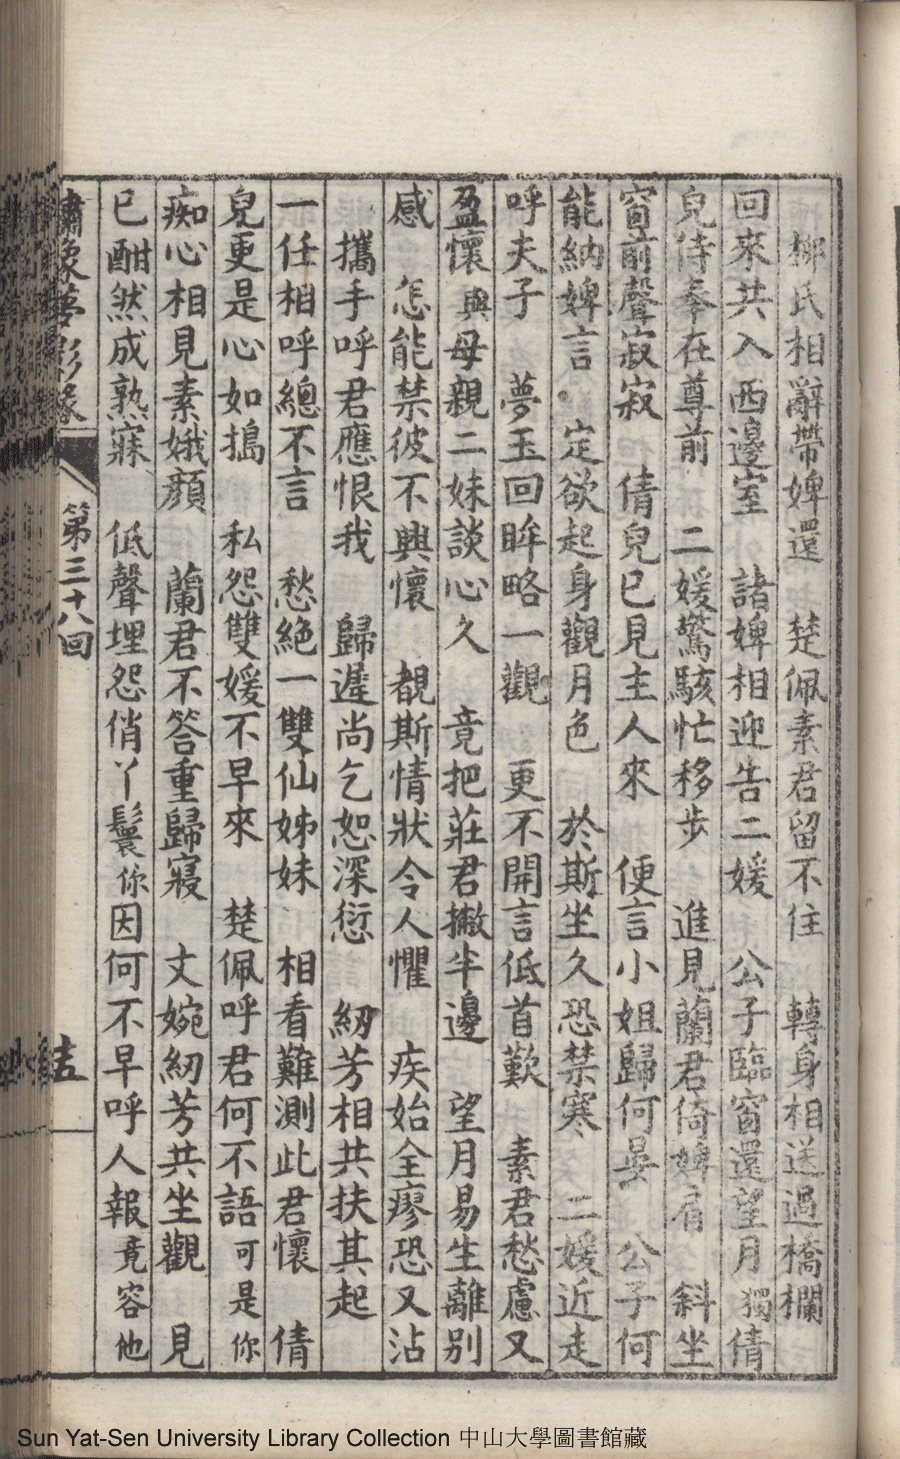 柳氏相辭帶婢還 楚佩素君留不住 轉身相送過橋欄
回來共入西邊室 諸婢相迎告二媛 公子臨窗還望月 獨倩
兒侍奉在尊前 二媛驚駭忙移步 進見蘭君倚婢肩 斜坐
窗前聲寂寂 倩兒已見主人來 便言小姐歸何晏 公子何
能納婢言 定欲起身觀月色 於斯坐久恐禁寒 二媛近走
呼夫子 夢玉回眸略一觀 更不開言低首歎 素君愁慮又
盈懷 與母親二妹談心久 竟把莊君撇半邊 望月易生離別
感 怎能禁彼不興懷 覩斯情狀令人懼 疾始全瘳恐又沾
攜手呼君應恨我 歸遲尚乞恕深愆 紉芳相共扶其起
一任相呼總不言 愁絕一雙仙姊妹 相看難測此君懷 倩
兒更是心如搗 私怨雙媛不早來 楚佩呼君何不語 可是你
痴心相見素娥顏 蘭君不答重歸寢 文婉紉芳共坐觀 見
已酣然成熟寐 低聲埋怨俏丫鬟 你因何不早呼人報 竟容他
繡像夢影緣 第三十八回
Sun Yat-Sen University Library Collection 中山大學圖書館藏